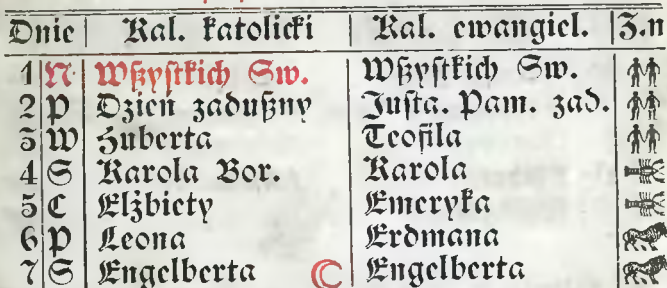 Dnie | Kal. katolicki | Kal. ewangiel. | Z.n
1 N Wszystkich Sw. Wszystkich Sw.
2 P Dzień zaduszny Justa. Pam. zad.
3 W Huberta Teofila
4 S Karola Bor. Karola
5 C Elżbiety Emeryka
6 P Leona Erdmana
7 S Engelberta Engelberta